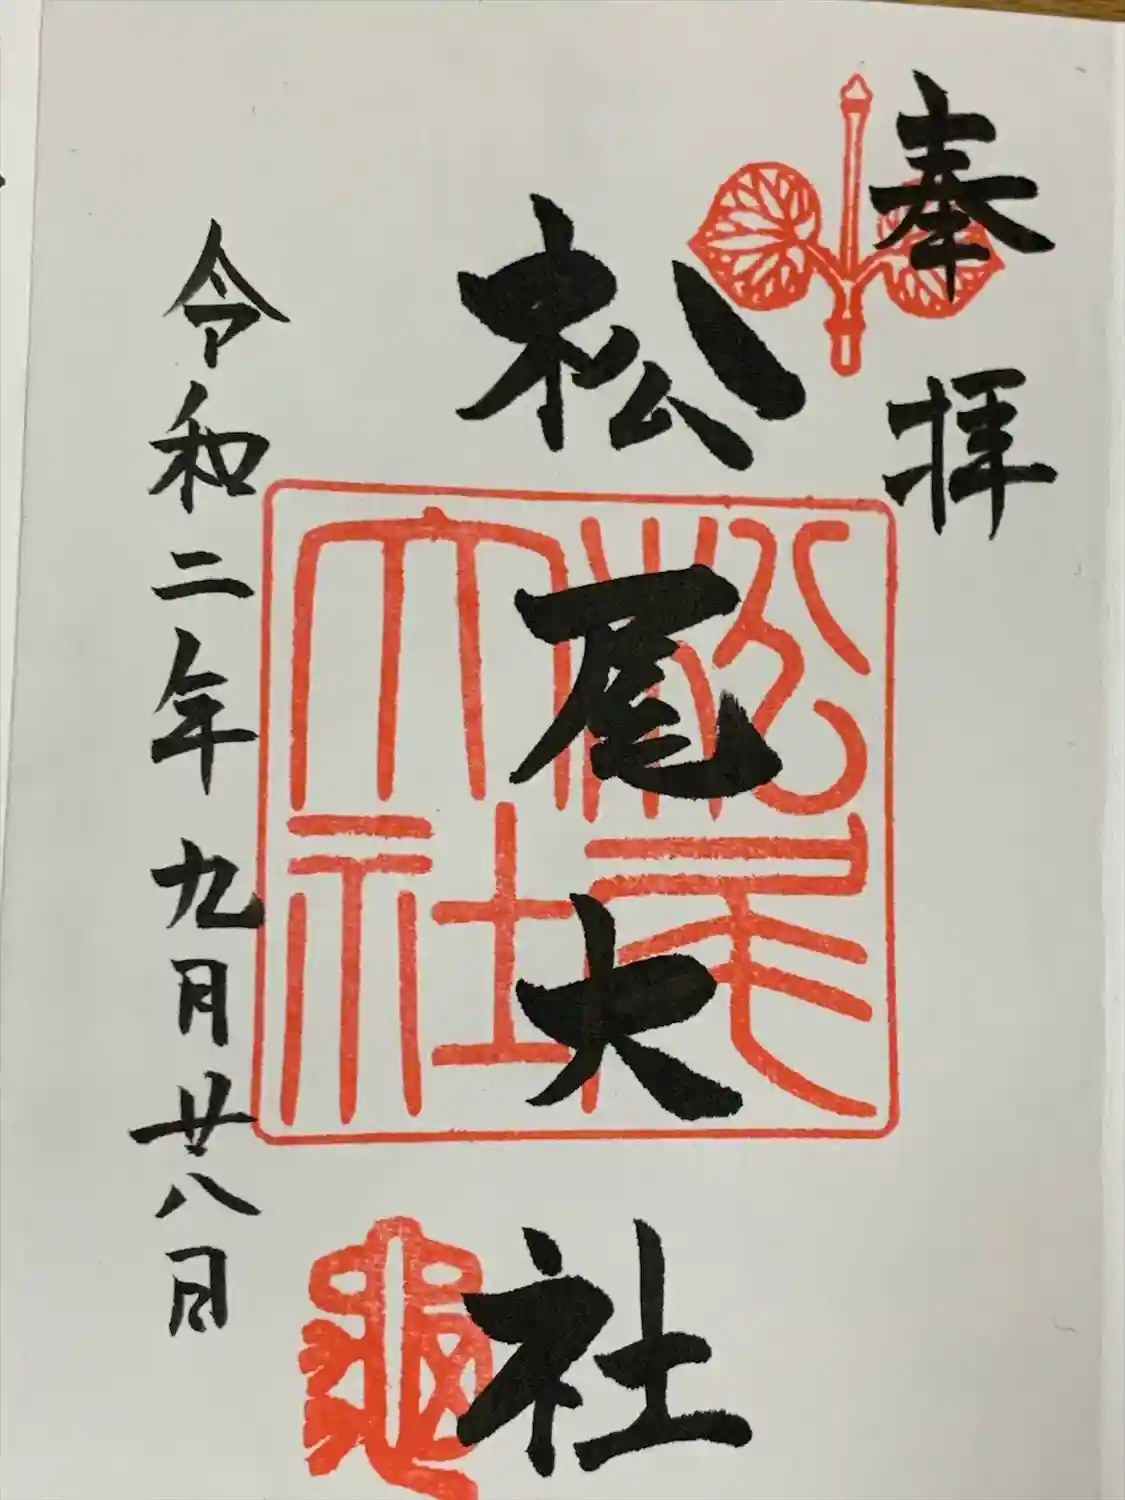 奉拝
松尾大社
松尾大社
亀
令和二年九月廿八日